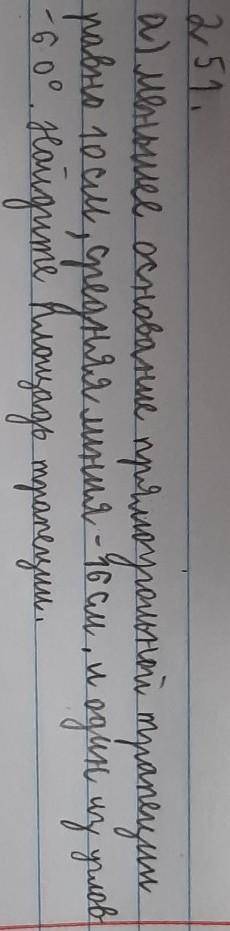 251.
а) меньшее основание прямоугольной трапеции
равно 10 см, средняя линия - 16 см, и один из углов
- 60°. Найдите площадь трапеции.